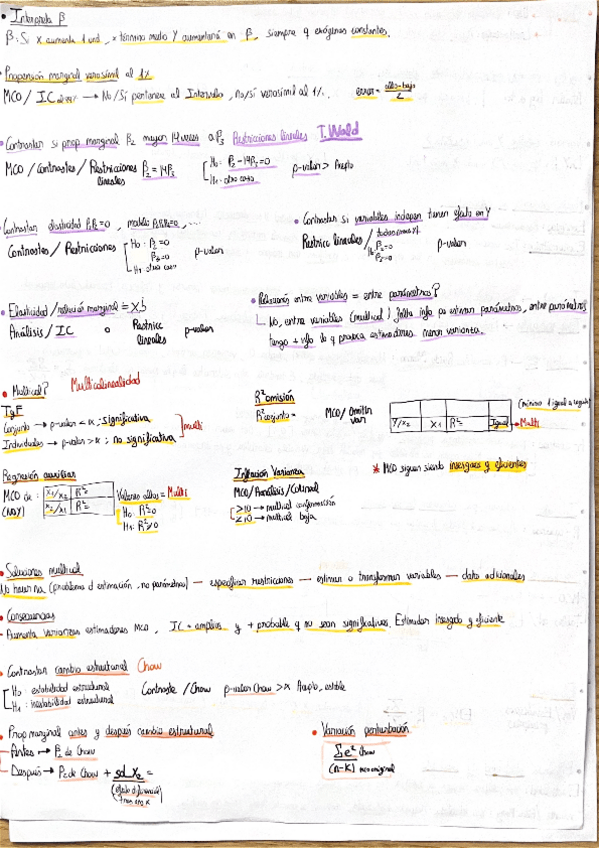 • Interpreta β
β: Si X aumenta 1 und, x término medio Y aumentará en β, siempre q exógenas constantes.
• Propensión marginal verosímil al 1%
MCO / IC → No/Sí pertenece al Intervalo, No/sí verosímil al 1%. error = alto-bajo / 2
• Contrastar si prop marginal β2 mayor 14 veces a β3 Restricciones lineales T. Wald
MCO / Contrastes / Restricciones lineales β2 = 14β3 [H0: β2 - 14β3 = 0 p-valor > Acepto
H1: otro caso
Contrastar elasticidad = 0, ...
Contrastes / Restricciones [H0: β2 = 0 p-valor
β3 = 0
H1 otro caso
• Contrastar si variables indepen tienen efecto en Y
Restricc lineales / H0 β2=0 p-valor
β3=0
• Elasticidad / relación marginal = X,5
Análisis / IC o Restricc lineales p-valor
• Relaciones entre variables = entre parámetros?
No, entre variables (multicol) falta info pa estimar parámetros, entre parámetros
tengo + info lo q provoca estimadores menor varianza.
• Multicol? Multicolinealidad
T y F
Conjunto → p-valor < α ; significativa
Individuales → p-valor > α ; no significativa ] multi
R² omisión
R² conjunto = MCO / Omitir var
Y/X2 X1 R²= Igual → Multi
Regresión auxiliar
MCO de : X1/X2 R²=
(NO Y) X2/X1 R²=
Valores altos = Multi
H0: R²=0
H1: R²≠0
Inflación Varianza
MCO/Análisis/Colineal
>10 → multicol
≤10 → multicol baja
* MCO siguen siendo insesgaos y eficientes
• Soluciones multicol
No hacer na (problema d estimación, no parámetros) — especificar restricciones — estimar o transformar variables — datos adicionales
• Consecuencias
- Aumenta varianzas estimadores MCO, IC + amplios y + probable q no sean significativas. Estimador insesgado y eficiente
• Contrastar cambio estructural Chow
[H0: estabilidad estructural
H1: inestabilidad estructural
Contraste / Chow p-valor Chow > α Acepto, estable
• Prop marginal antes y después cambio estructural
- Antes → β2 de Chow
- Después → β2 de Chow + sd_X2 =
(efecto diferencial
• Variación perturbación
Σe² Chow
(n-K) mco original